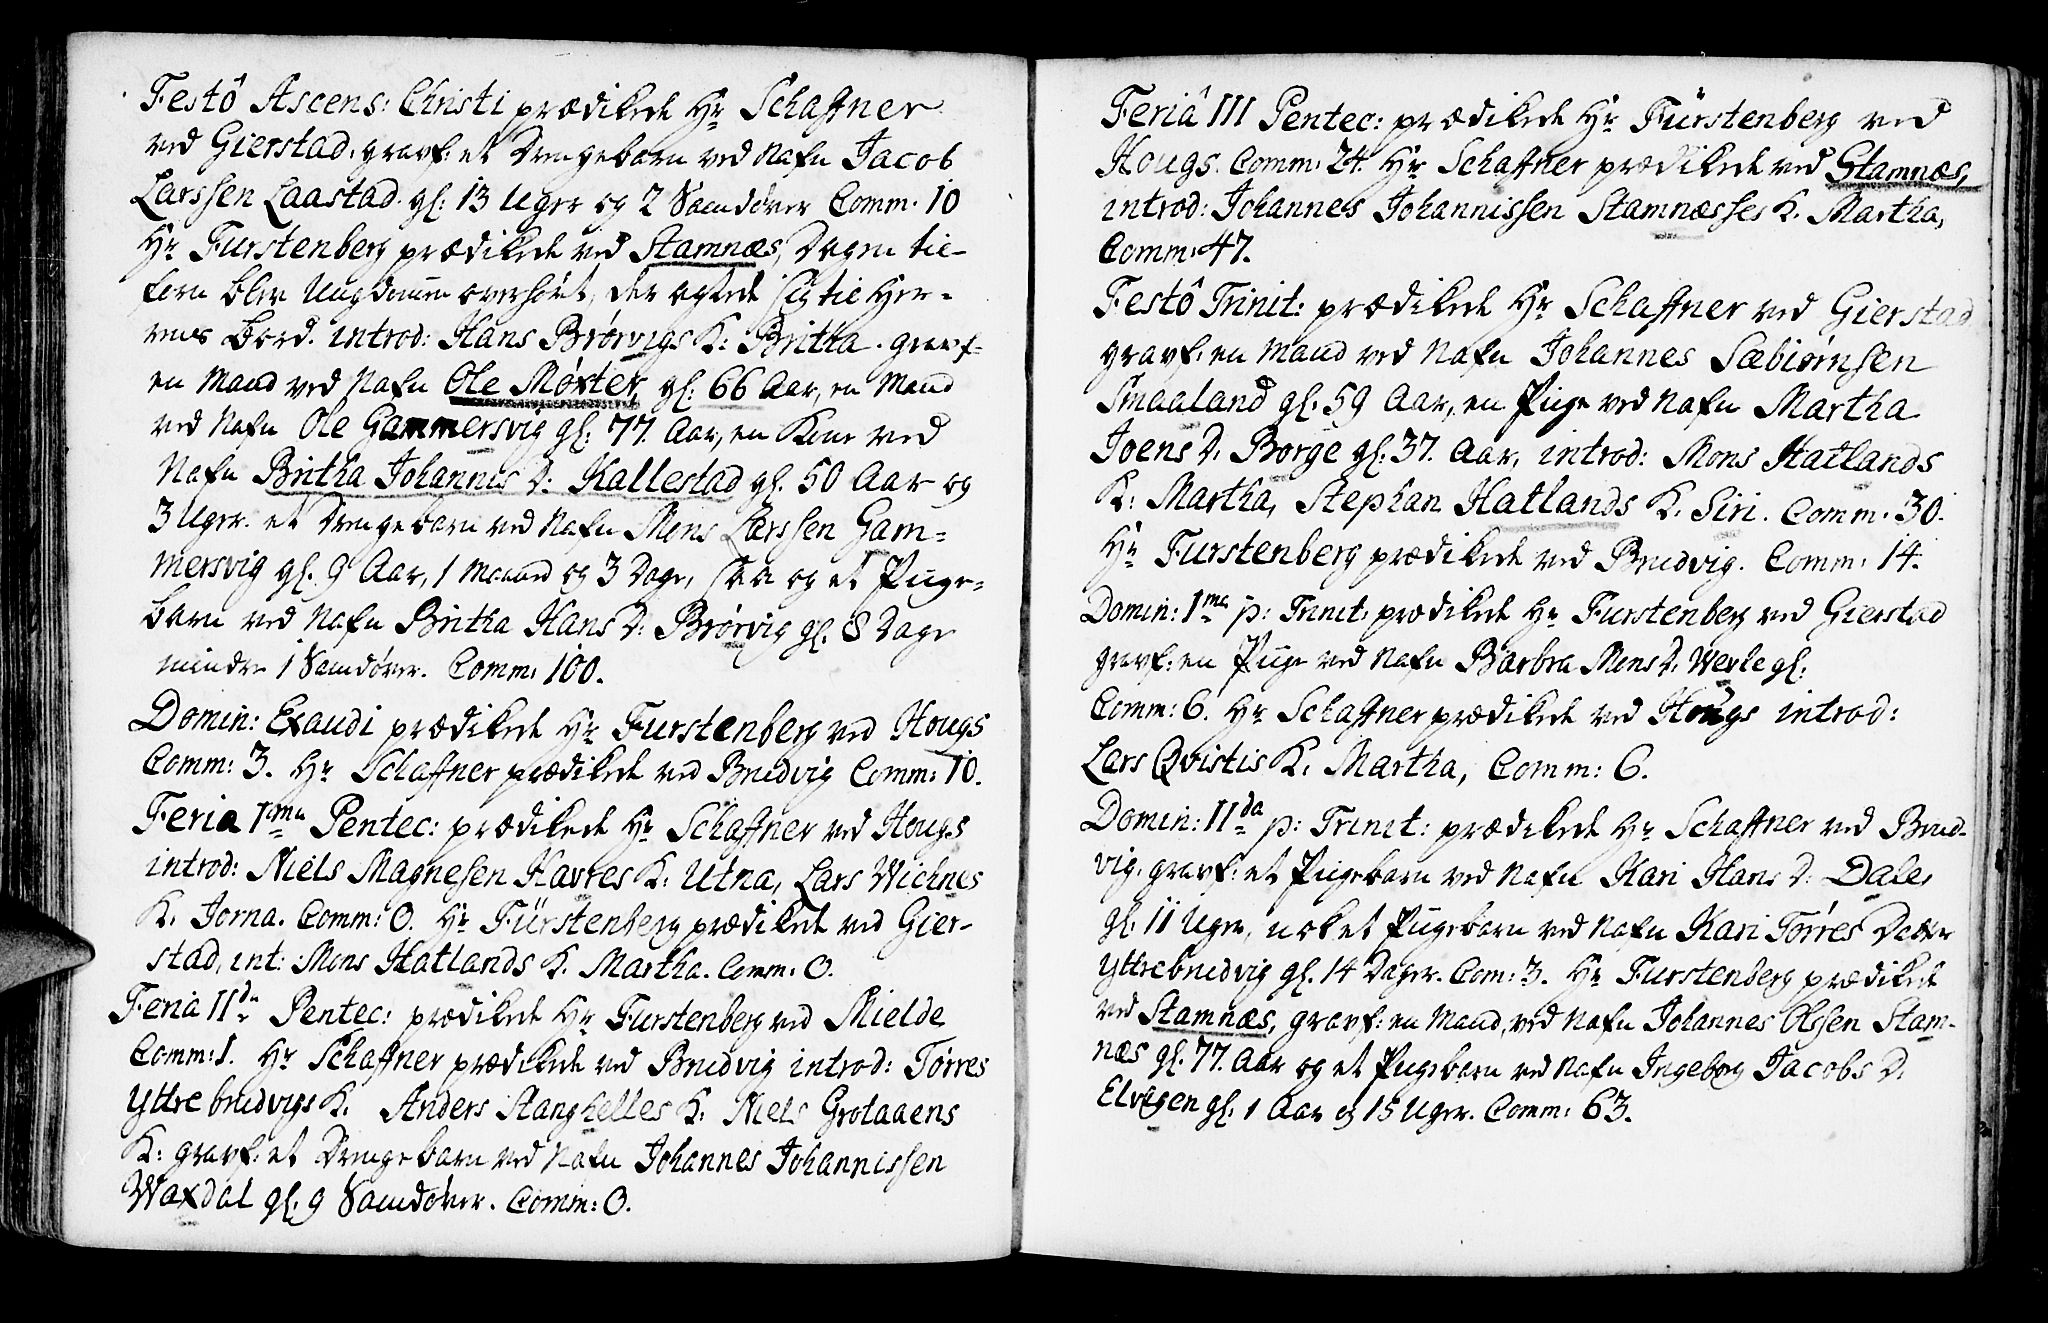 Festô Ascens: Christi prædikede Hr Schaffner
ved Gierstad, gravf: et Drengebarn ved Nafn Jacob
Larssen Laastad. gl: 13 Uger og 2 Samdøver Comm. 10
Hr Furstenberg prædikede ved Stamnæs, Dagen til-
forn blev Ungdommen overhørt, der agtede sig til Her-
rens Bord. introd: Hans Brørvigs K: Britha. gravf:
en Mand ved Nafn Ole Møster, gl: 66 Aar, en Mand
ved Nafn Ole Gammersvig gl: 77. Aar, en Kone ved
Nafn Britha Johannis D: Kallestad gl. 50 Aar og
3 Uger. et Drengebarn ved Nafn Mons Larssen Gam=
mersvig gl. 9 Aar, 1 Maaned og 3 Dage, saa og et Pige=
barn ved Nafn Britha Hans D: Brørvig gl. 8 Dage
mindre 1 Samdøver. Comm: 100.
Domin: Exaudi prædikede Hr Furstenberg ved Hougs
Comm: 3. Hr Schaffner prædikede ved Brudvig Comm: 10.
Feria 1ma Pentec: prædikede Hr Schaffner ved Hougs
introd: Niels Magnesen Havres K: Utna, Lars Wichnes
K. Jorna. Comm: 0. Hr Fürstenberg prædikede ved Gier-
stad, int: Mons Hatlands K. Martha. Comm: 0.
Feria IIda Pentec: prædikede Hr Furstenberg ved Mielde
Comm: 1. Hr Schaffner prædikede ved Brudvig introd: Tørres
Yttrebrudvigs K. Anders Stanghelles K. Niels Grotaaens
K: gravf: et Drengebarn ved Nafn Johannes Johannissen
Waxdal gl. 9 Samdøver. Comm: 0.
Feriâ III Pentec: prædikede Hr Fürstenberg ved
Hougs. Comm: 24. Hr Schaffner prædikede ved Stamnæs,
introd: Johannes Johannissen Stamnæsses K. Martha,
Comm: 47.
Festô Trinit: prædikede Hr Schaffner ved Gierstad
gravf: en Mand ved Nafn Johannes Sæbiørnsen
Smaaland gl. 59 Aar, en Pige ved Nafn Martha
Joens D. Borge gl: 37. Aar, introd: Mons Hatlands
K: Martha, Stephan Hatlands K. Siri. Comm. 30.
Hr Furstenberg prædikede ved Brudvig. Comm: 14.
Domin: 1ma p: Trinit: prædikede Hr Furstenberg ved Gierstad
gravf: en Pige ved Nafn Barbra Mons D. Werle gl:
Comm: 6. Hr Schaffner prædikede ved Hougs introd:
Lars Qvistis K. Martha, Comm: 6.
Domin: IIda p: Trinit: prædikede Hr Schaffner ved Brud-
vig, gravf: et Pigebarn ved Nafn Kari Hans D: Dale,
gl. 11 Uger, nok et Pigebarn ved Nafn Kari Tørres Datter
Yttrebrudvig gl. 14 Dager. Com: 3. Hr Furstenberg prædikede
ved Stamnæs, gravf: en Mand, ved Nafn Johannes Olssen Stam-
næs gl. 77. Aar og et Pigebarn ved Nafn Ingeborg Jacobs D.
Elvigen gl. 1 Aar og 15 Uger. Comm: 63.